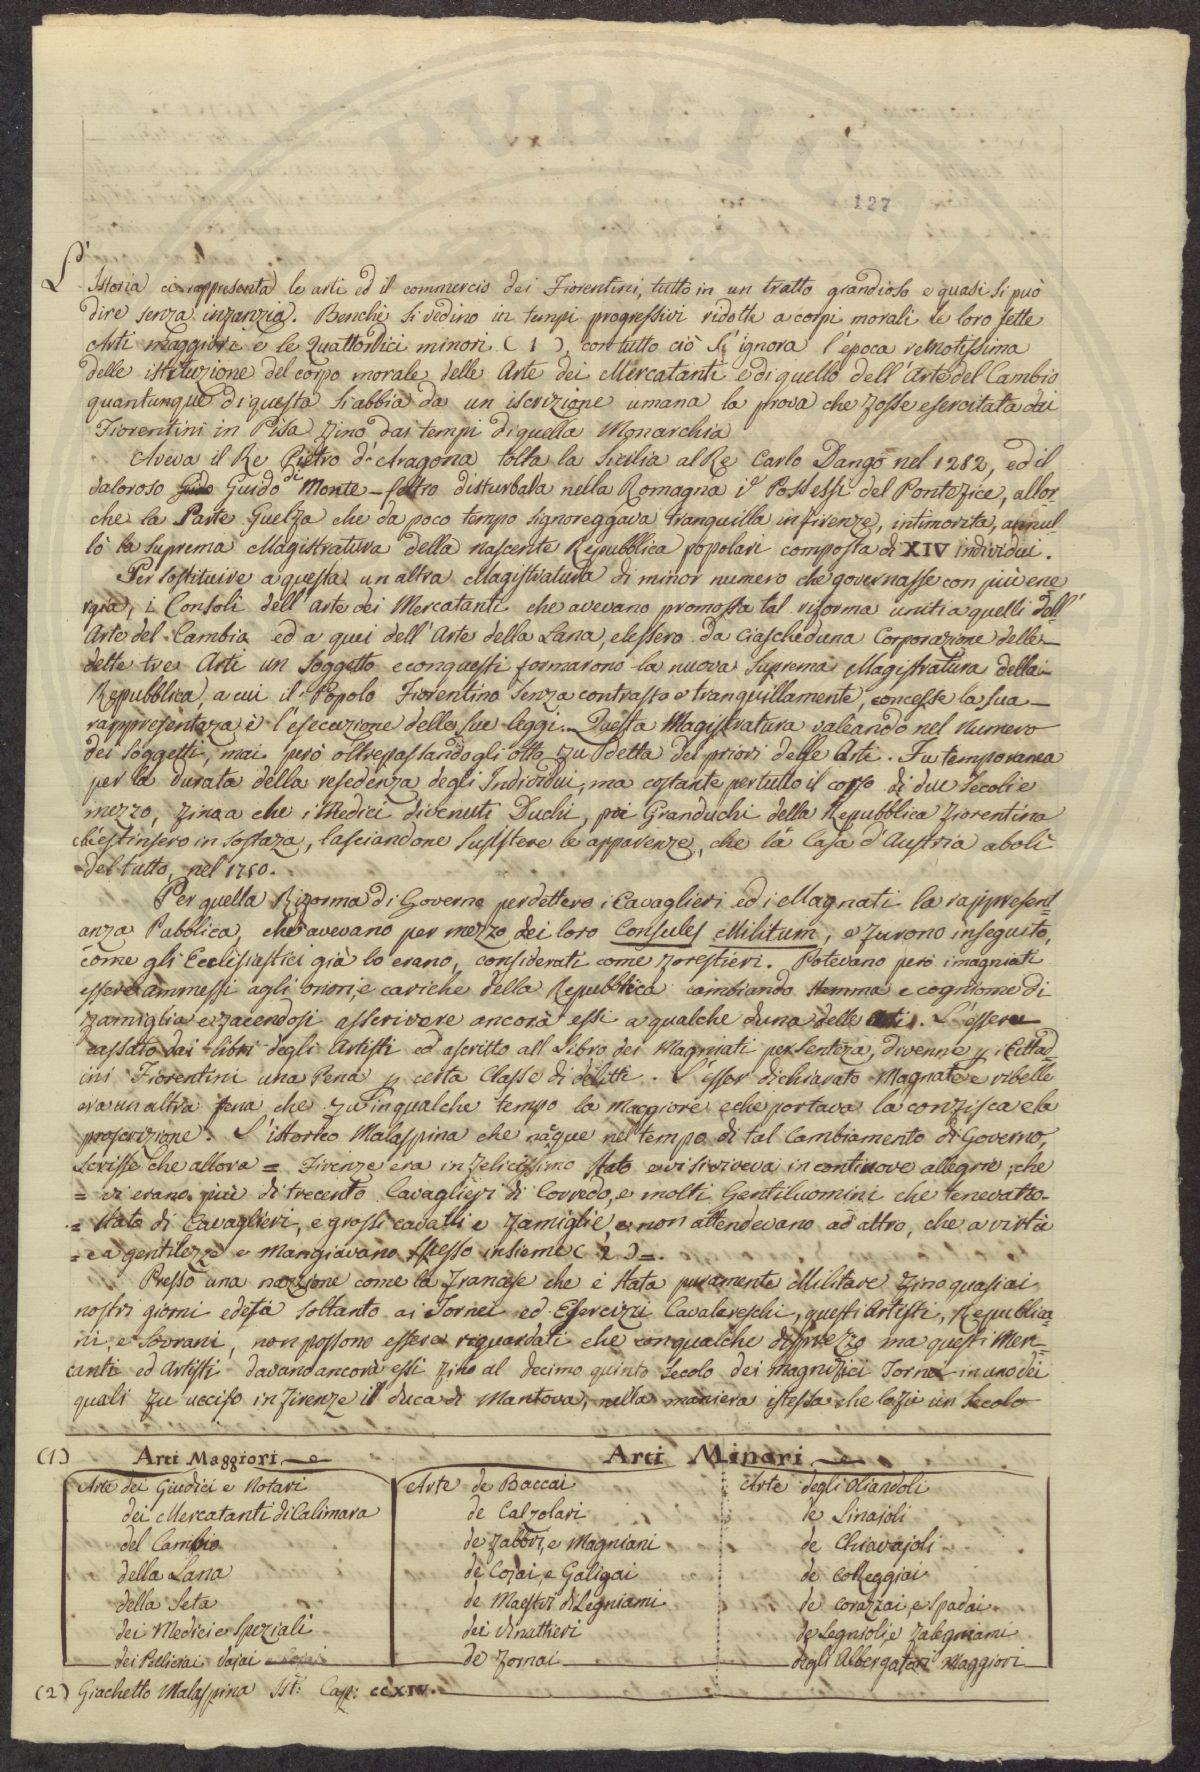 PUBLIC
127
L'Istoria ci rappresenta le arti ed il commercio dei Fiorentini, tutto in un tratto grandioso e quasi si può
dire senza infanzia. Benchè si vedino in tempi progressivi ridotte a corpi morali le loro sette
Arti maggiori e le Quattordici minori (1), con tutto ciò si ignora l'epoca remotissima
delle istituzione del corpo morale delle Arte dei Mercatanti e di quello dell'Arte del Cambio
quantunque di questa si abbia da un iscrizione umana la prova che fosse esercitata dai
Fiorentini in Pisa fino dai tempi di quella Monarchia
Aveva il Re Pietro d'Aragona tolta la Sicilia al Re Carlo Dangò nel 1282, ed il
valoroso Guido di Monte-feltro disturbava nella Romagna i Possessi del Pontefice, allor
che la Parte Guelfa che da poco tempo signoreggava tranquilla in firenze, intimorita, annul
lò la suprema Magistratura della nascente Republica popolari composta di XIV individui.
Per sostituire a questa un altra Magistratura di minor numero che governasse con più ene
rgia, i Consoli dell'arte dei Mercatanti che avevano promossa tal riforma uniti a quelli dell'
Arte del Cambia ed a quei dell'Arte della Lana, elessero da ciascheduna Corporazione delle
dette tre Arti un soggetto e conquesti formarono la nuova suprema Magistratura della
Reppubblica, a cui il Popolo Fiorentino senza contrasto e tranquillamente, concesse la sua
rappresenteza e l'esecuzione delle sue leggi. Questa Magistratura valeando nel Numero
dei soggetti, mai però oltrepassando gli otto fu detta dei priori delle Arti. Fu temporanea
per la durata della resedenza degli Individui, ma costante per tutto il corso di due secoli e
mezzo, finaa che i Medici divenuti Duchi, poi Granduchi della Repubblica fiorentina
chestinsero in sostaza, lasciandone susistere le apparenze, che la Casa d'Austria abolì
del tutto, nel 1750.
Per quella Riforma di Governo perdettero i Cavaglieri ed i Magnati la rappresent
anza Pubblica, che avevano per mezzo dei loro Consules Militum, e furono inseguito,
come gli Eclisiastici già lo erano, considerati come forestieri. Potevano però i magniati
essere ammessi agli onori, e cariche della Repubblica cambiando stemma e cogniome di
famiglia e facendosi asscrivere ancora essi a qualche duna delle arti. L'essere
cassato dai libri degli Artisti ed ascritto all Libro dei Magniati per senteza, divenne p i Cittad
ini Fiorentini una Pena p certa Classe di delitti. L'esser dichiarato Magnate e ribelle
era un altra pena che fu in qualche tempo la maggiore e che portava la confisca e la
proscrizione. L'istorico Malaspina che naque nel tempo di tal Cambiamento di Governo,
scrisse che allora = Firenze era in felicissimo stato e vi si viveva in continove allegrie, che
= vi erano più di trecento Cavaglieri di Corredo, e molti Gentiluomini che tenevano
= stato di Cavaglieri, e grossi cavalli e famiglie, e non attendevano ad altro, che a virtù
= e a gentilezze e mangiavano spesso insieme (2) =.
Presso una nazzione come la francese che è stata puramente Militare fino quasi ai
nostri giorni soltanto ai Tornei ed Esercizzi Cavalereschi, questi Artisti, Republica
ni, e Sovrani, non possono essere riguardati che con qualche disprezzo ma questi Mer-
canti ed Artisti davano ancora essi fino al decimo quinto secolo dei magnifici Tornei in uno dei
quali fu ucciso in firenze il duca di Mantova, nella maniera istessa che lo fu un secolo
(1) Arti Maggiori
Arte dei Giudici e Notari
dei Mercatanti di Calimara
del Cambio
della Lana
della Seta
dei Medici e Speziali
dei Pellicciai Vajai
Arti Minori
Arte de Baccai
de Calzolari
de fabbri, e Magniani
de Cojai, e Galigai
de Maestri di Legniami
dei Vinattieri
de Fornai
Arte degli Oliandoli
de Linajoli
de Chiavajoli
de Coreggiai
de Corazzai, e Spadai
de Legnioli, e falegniami
degli Albergatori Maggiori
(2) Giachetto Malaspina Ist: Cap: CCXIV.